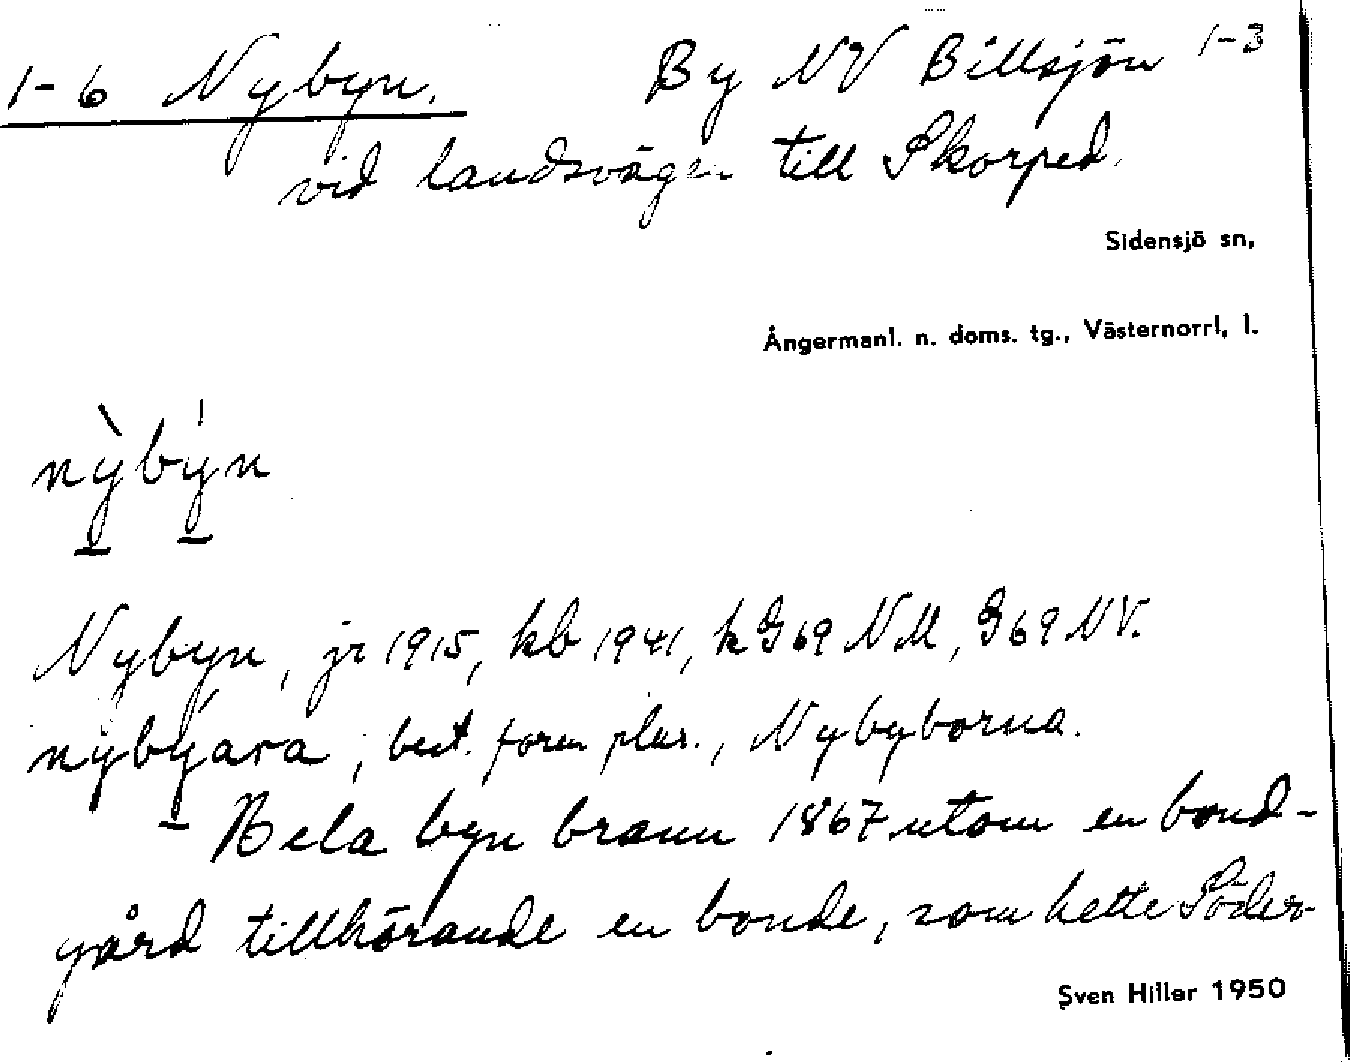 1-6 Nybyn. By NV Billsjön 1-3
vid landsvägen till Skorped.
Sidensjö sn,
Ångermanl. n. doms. tg., Västernorrl. l.
nỳbýn
Nybyn, jr 1915, kb 1941, kG 69 NM, G 69 NV.
nybyara, best. form plur., Nybyborna.
Hela byn brann 1867 utom en bond-
gård tillhörande en bonde, som hette Söder-
Sven Hiller 1950